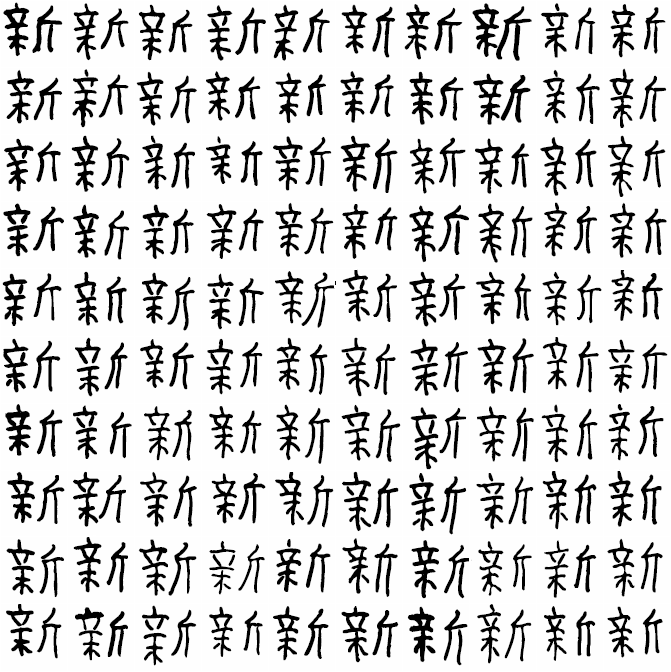 新新新新新新新新新新
新新新新新新新新新新
新新新新新新新新新新
新新新新新新新新新新
新新新新新新新新新新
新新新新新新新新新新
新新新新新新新新新新
新新新新新新新新新新
新新新新新新新新新新
新新新新新新新新新新